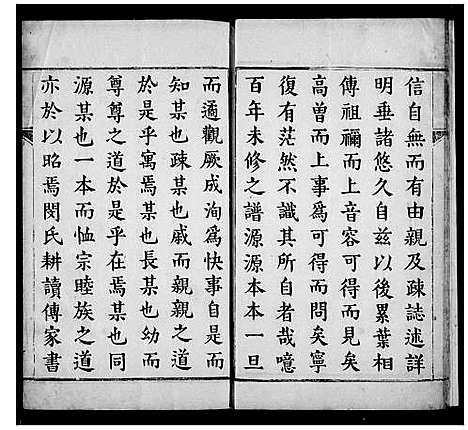 信自無而有由親及疎誌述詳
明垂諸悠久自兹以後累葉相
傳祖禰而上音容可得而見矣
高曽而上事為可得而問矣寧
復有茫然不識其所自者哉噫
百年未修之譜源源本本一旦
而遹觀厥成洵為快事自是而
知某也疎某也戚而親親之道
於是乎寓焉某也長某也幼而
尊尊之道於是乎在焉某也同
源某也一本而恤宗睦族之道
亦於以昭焉閔氏耕讀傳家書